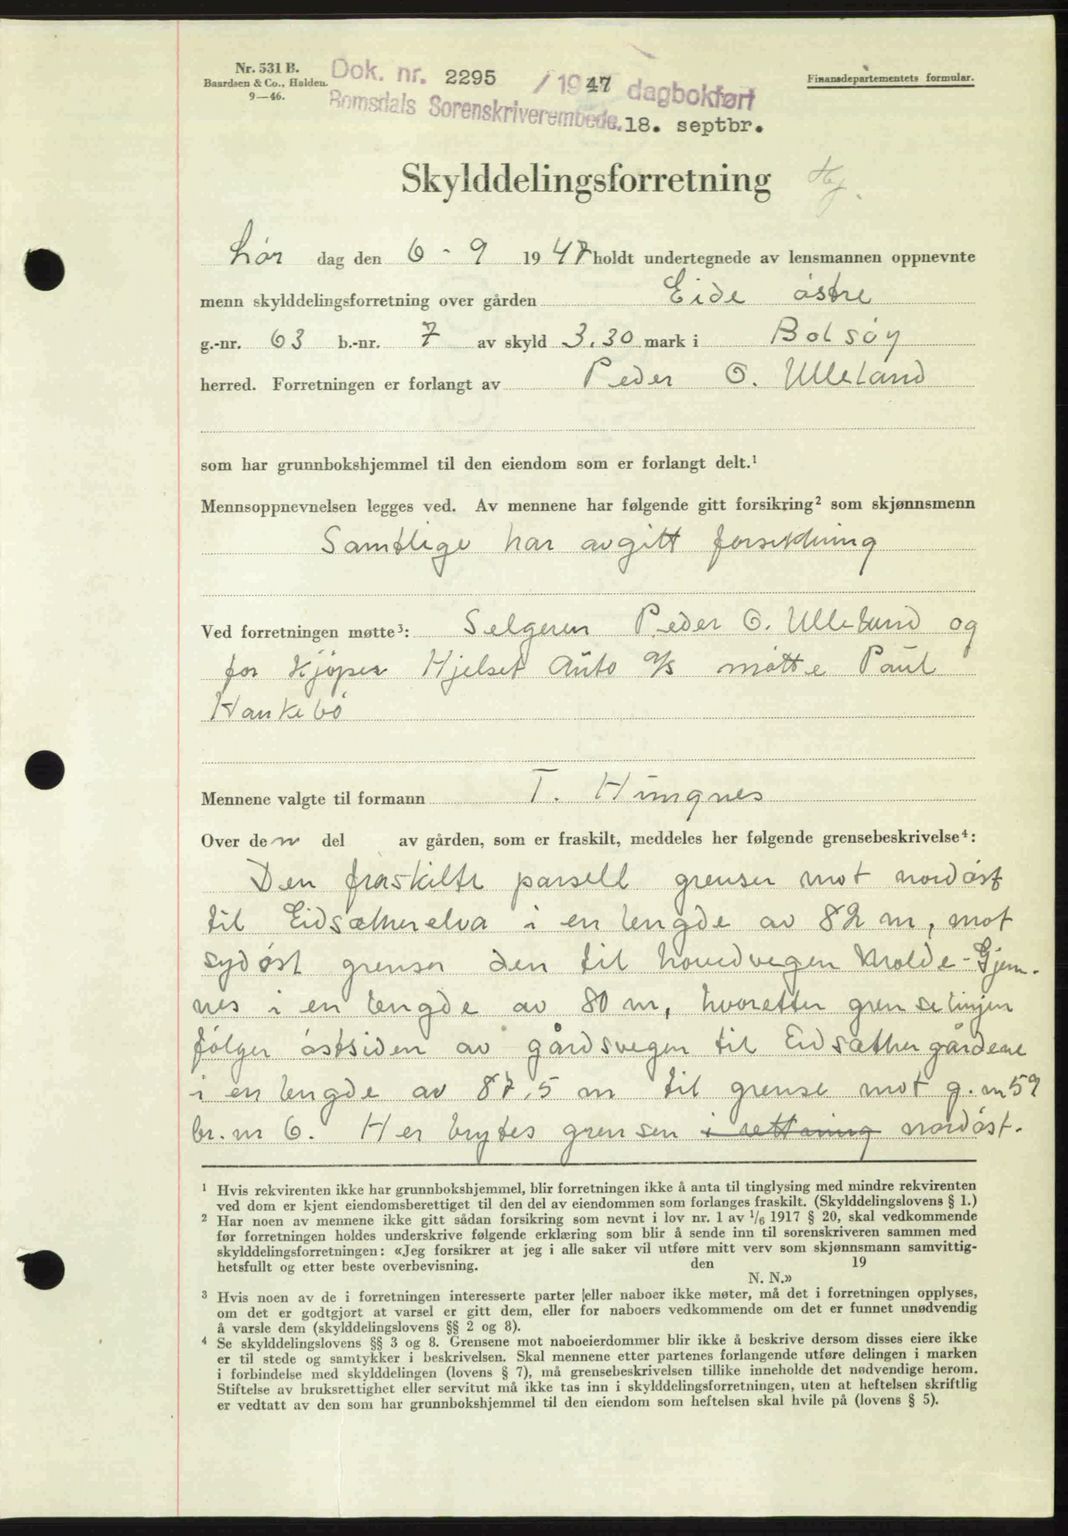 Nr. 531 B.
Baardsen & Co., Halden.
9—46.
Dok. nr. 2295 / 1947 dagbokført
Romsdals Sorenskriverembede. 18. septbr.
Finansdepartementets formular.
Skylddelingsforretning
Lør dag den 6 - 9 1947 holdt undertegnede av lensmannen oppnevnte
menn skylddelingsforretning over gården Eide østre
g.-nr. 63 b.-nr. 7 av skyld 3.30 mark i Bolsøy
herred. Forretningen er forlangt av Peder O. Ulleland
som har grunnbokshjemmel til den eiendom som er forlangt delt.¹
Mennsoppnevnelsen legges ved. Av mennene har følgende gitt forsikring² som skjønnsmenn
Samtlige har avgitt forsikring
Ved forretningen møtte³: Selgeren Peder O. Ulleland og
for kjøper Hjelset Auto A/S møtte Paul
Hankebø
Mennene valgte til formann T. Hungnes
Over den del av gården, som er fraskilt, meddeles her følgende grensebeskrivelse⁴:
Den fraskilte parsell grenser mot nordøst
til Eidsætherelva i en lengde av 82 m, mot
sydøst grenser den til hovedvegen Molde-Gjem-
nes i en lengde av 80 m, hvoretter grenselinjen
følger østsiden av gårdsvegen til Eidsæthergårdene
i en lengde av 87,5 m til grense mot g. nr 59
br. nr 6. Her brytes grensen i rettning nordøst.
¹ Hvis rekvirenten ikke har grunnbokshjemmel, blir forretningen ikke å anta til tinglysing med mindre rekvirenten
ved dom er kjent eiendomsberettiget til den del av eiendommen som forlanges fraskilt. (Skylddelingslovens § 1.)
² Har noen av mennene ikke gitt sådan forsikring som nevnt i lov nr. 1 av 1/6 1917 § 20, skal vedkommende
før forretningen holdes underskrive følgende erklæring som blir å sende inn til sorenskriveren sammen med
skylddelingsforretningen: «Jeg forsikrer at jeg i alle saker vil utføre mitt verv som skjønnsmann samvittig-
hetsfullt og etter beste overbevisning. den 19
N. N.»
³ Hvis noen av de i forretningen interesserte parter eller naboer ikke møter, må det i forretningen opplyses,
om det er godtgjort at varsel er gitt dem, eller for naboers vedkommende om det er funnet unødvendig
å varsle dem (skylddelingslovens §§ 2 og 8).
⁴ Se skylddelingslovens §§ 3 og 8. Grensene mot naboeierdommer blir ikke å beskrive dersom disses eiere ikke
er til stede og samtykker i beskrivelsen. Skal mennene etter partenes forlangende utføre delingen i marken
i forbindelse med skylddelingen (lovens § 7), må grensebeskrivelsen tillike inneholde det nødvendige herom.
Stiftelse av bruksrettighet eller servitut må ikke tas inn i skylddelingsforretningen, uten at heftelsen skriftlig
er vedtatt av den som har grunnbokshjemmel til den eiendom som heftelsen skal hvile på (lovens § 5).